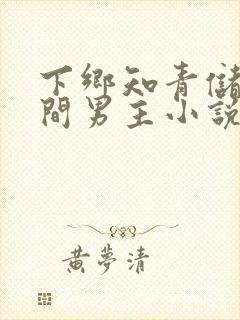 下鄉知青儲
間男主小說
黃夢清